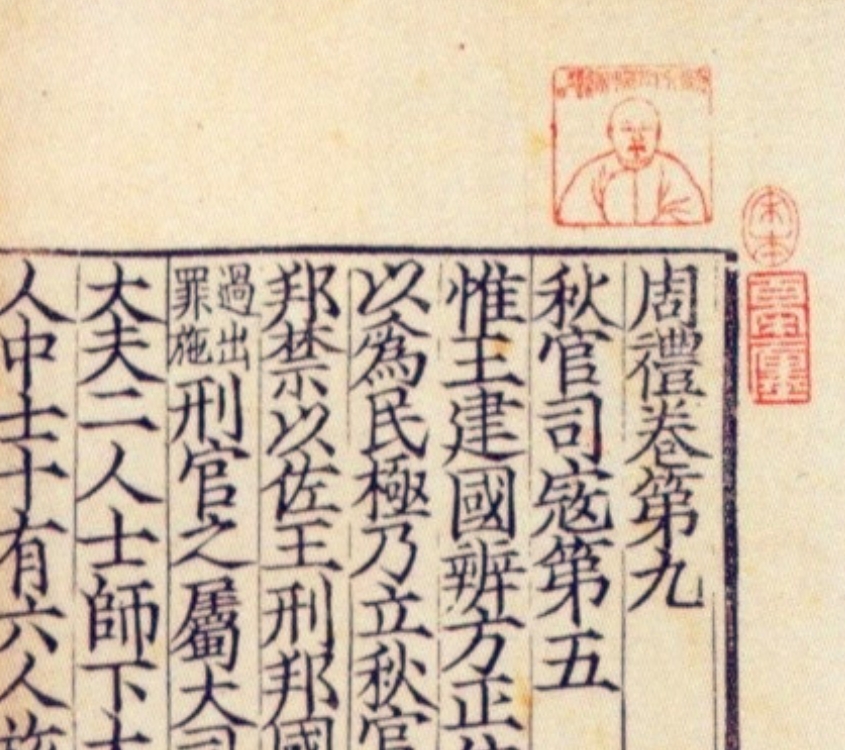 宋本
周禮卷第九
秋官司寇第五
惟王建國辨方正
以爲民極乃立秋官
邦禁以佐王刑邦國
過出
罪施
刑官之屬大司
大夫二人士師下大
人中士十有六人